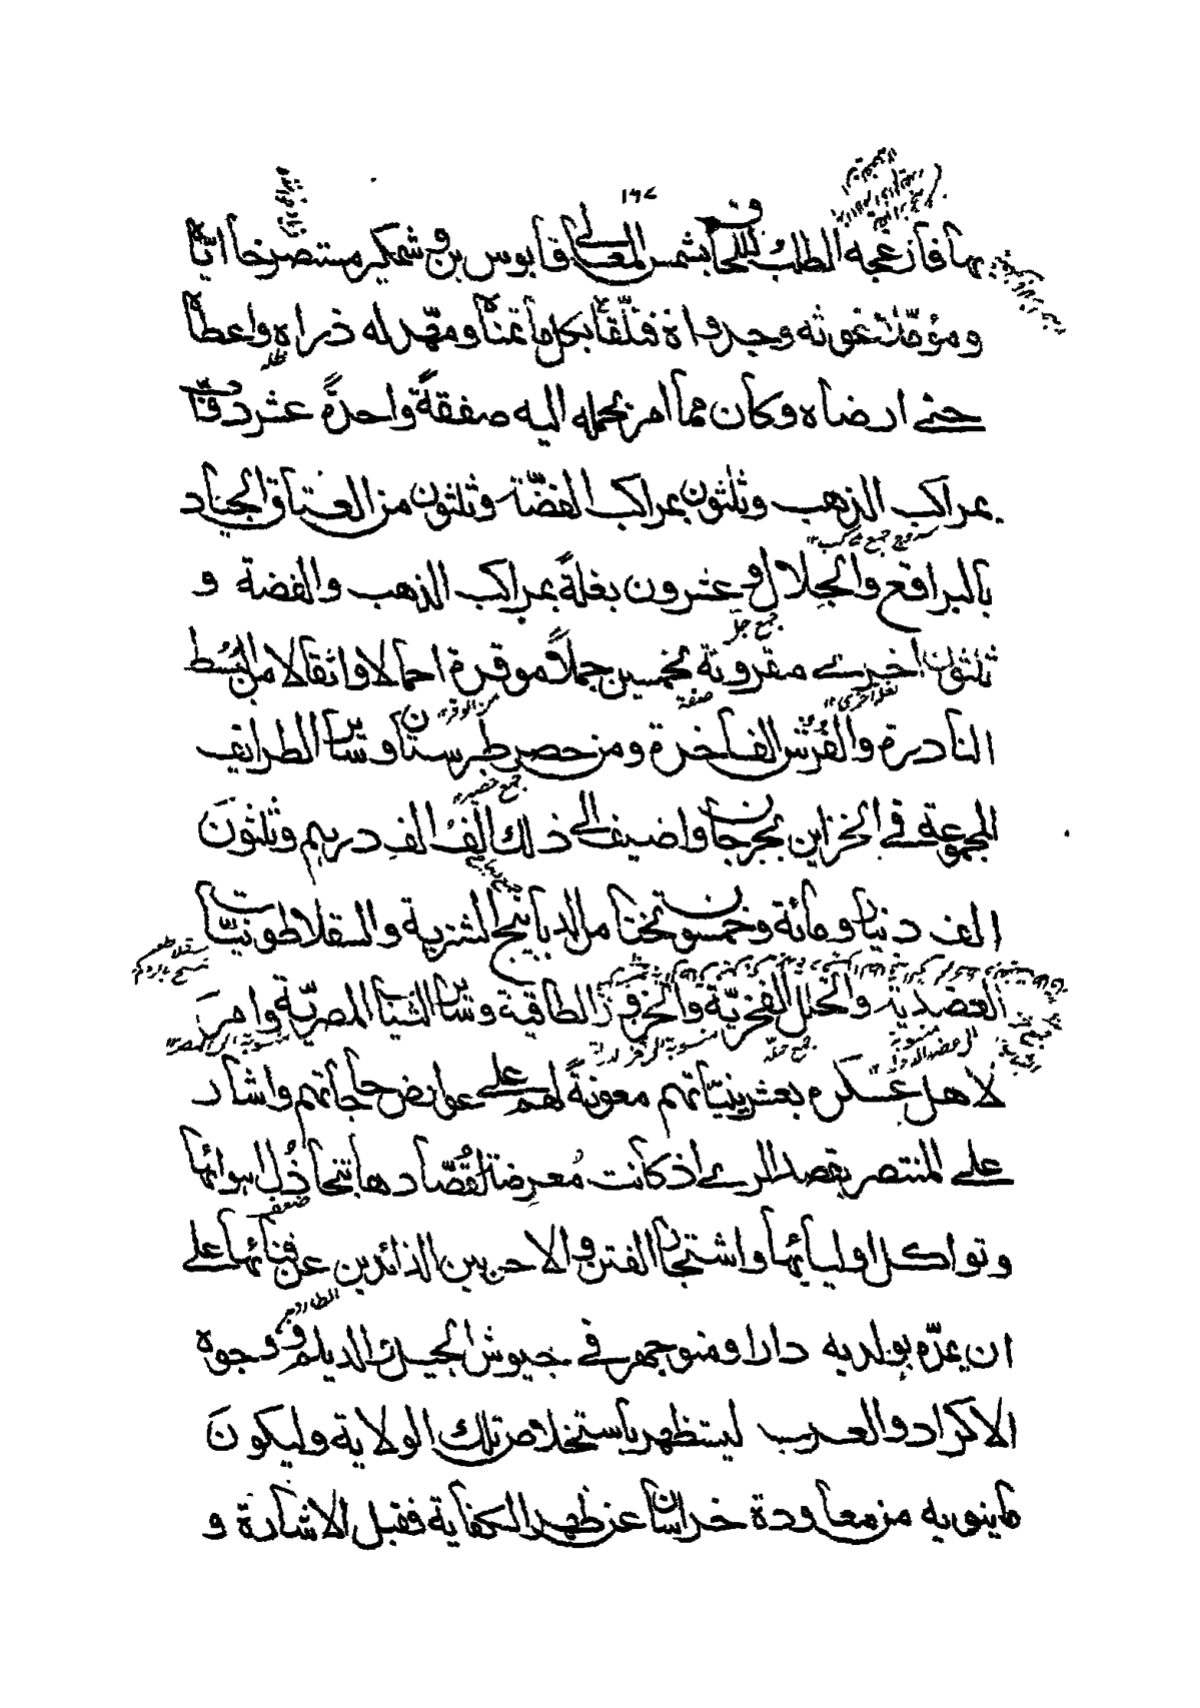 ١٦٤
بها فازعجه الطلب للحاق بشمس المعالي قابوس بن وشمكير مستصرخا اياه
ومؤملا غوثه وجدواه فتلقاه بكل ما تمناه ومهد له ذراه واعطاه
حتى ارضاه وكان مما امر بحمله اليه صفقةً واحدةً عشر دوابّ
بمراكب الذهب وثلثون بمراكب الفضة وثلثون من العتاق الجياد
بالبراقع والجلال وعشرون بغلةً بمراكب الذهب والفضة و
ثلثون اخرى مقرونة بخمسين جملاً موقرة احمالا واثقالا من البُسط
النادرة والفُرُش الفاخرة ومن حصر طبرستان وساير الطرايف
المجموعة في الخزاين بجرجان واضيف الى ذلك الفُ الفِ درهم وثلثونَ
الف دينار ومائة وخمسون تختا من الديابيج التسترية والسقلاطونيات
العضدية والحلل الفخرية والخزوز الطاقية وساير الثياب المصرية وامرَ
لاهل عسكره بعشرينياتهم معونةً لهم على عوارض حاجاتهم واشار
على المنتصر بقصد الرى اذ كانت مُعرِضة لقُصّادها بتخاذُل اهوائها
وتواكل اوليائها واشتجار الفتن والاحن بين الذائدين عن فنائها على
ان يمدّه بولديه دارا ومنوجهر في جيوش الجيل والديلم ووجوه
الاكراد والعرب ليستظهر باستخلاص تلك الولاية وليكونَ
ما ينويه من معاودة خراسان عن ظهر الكفاية فقبل الاشارة و